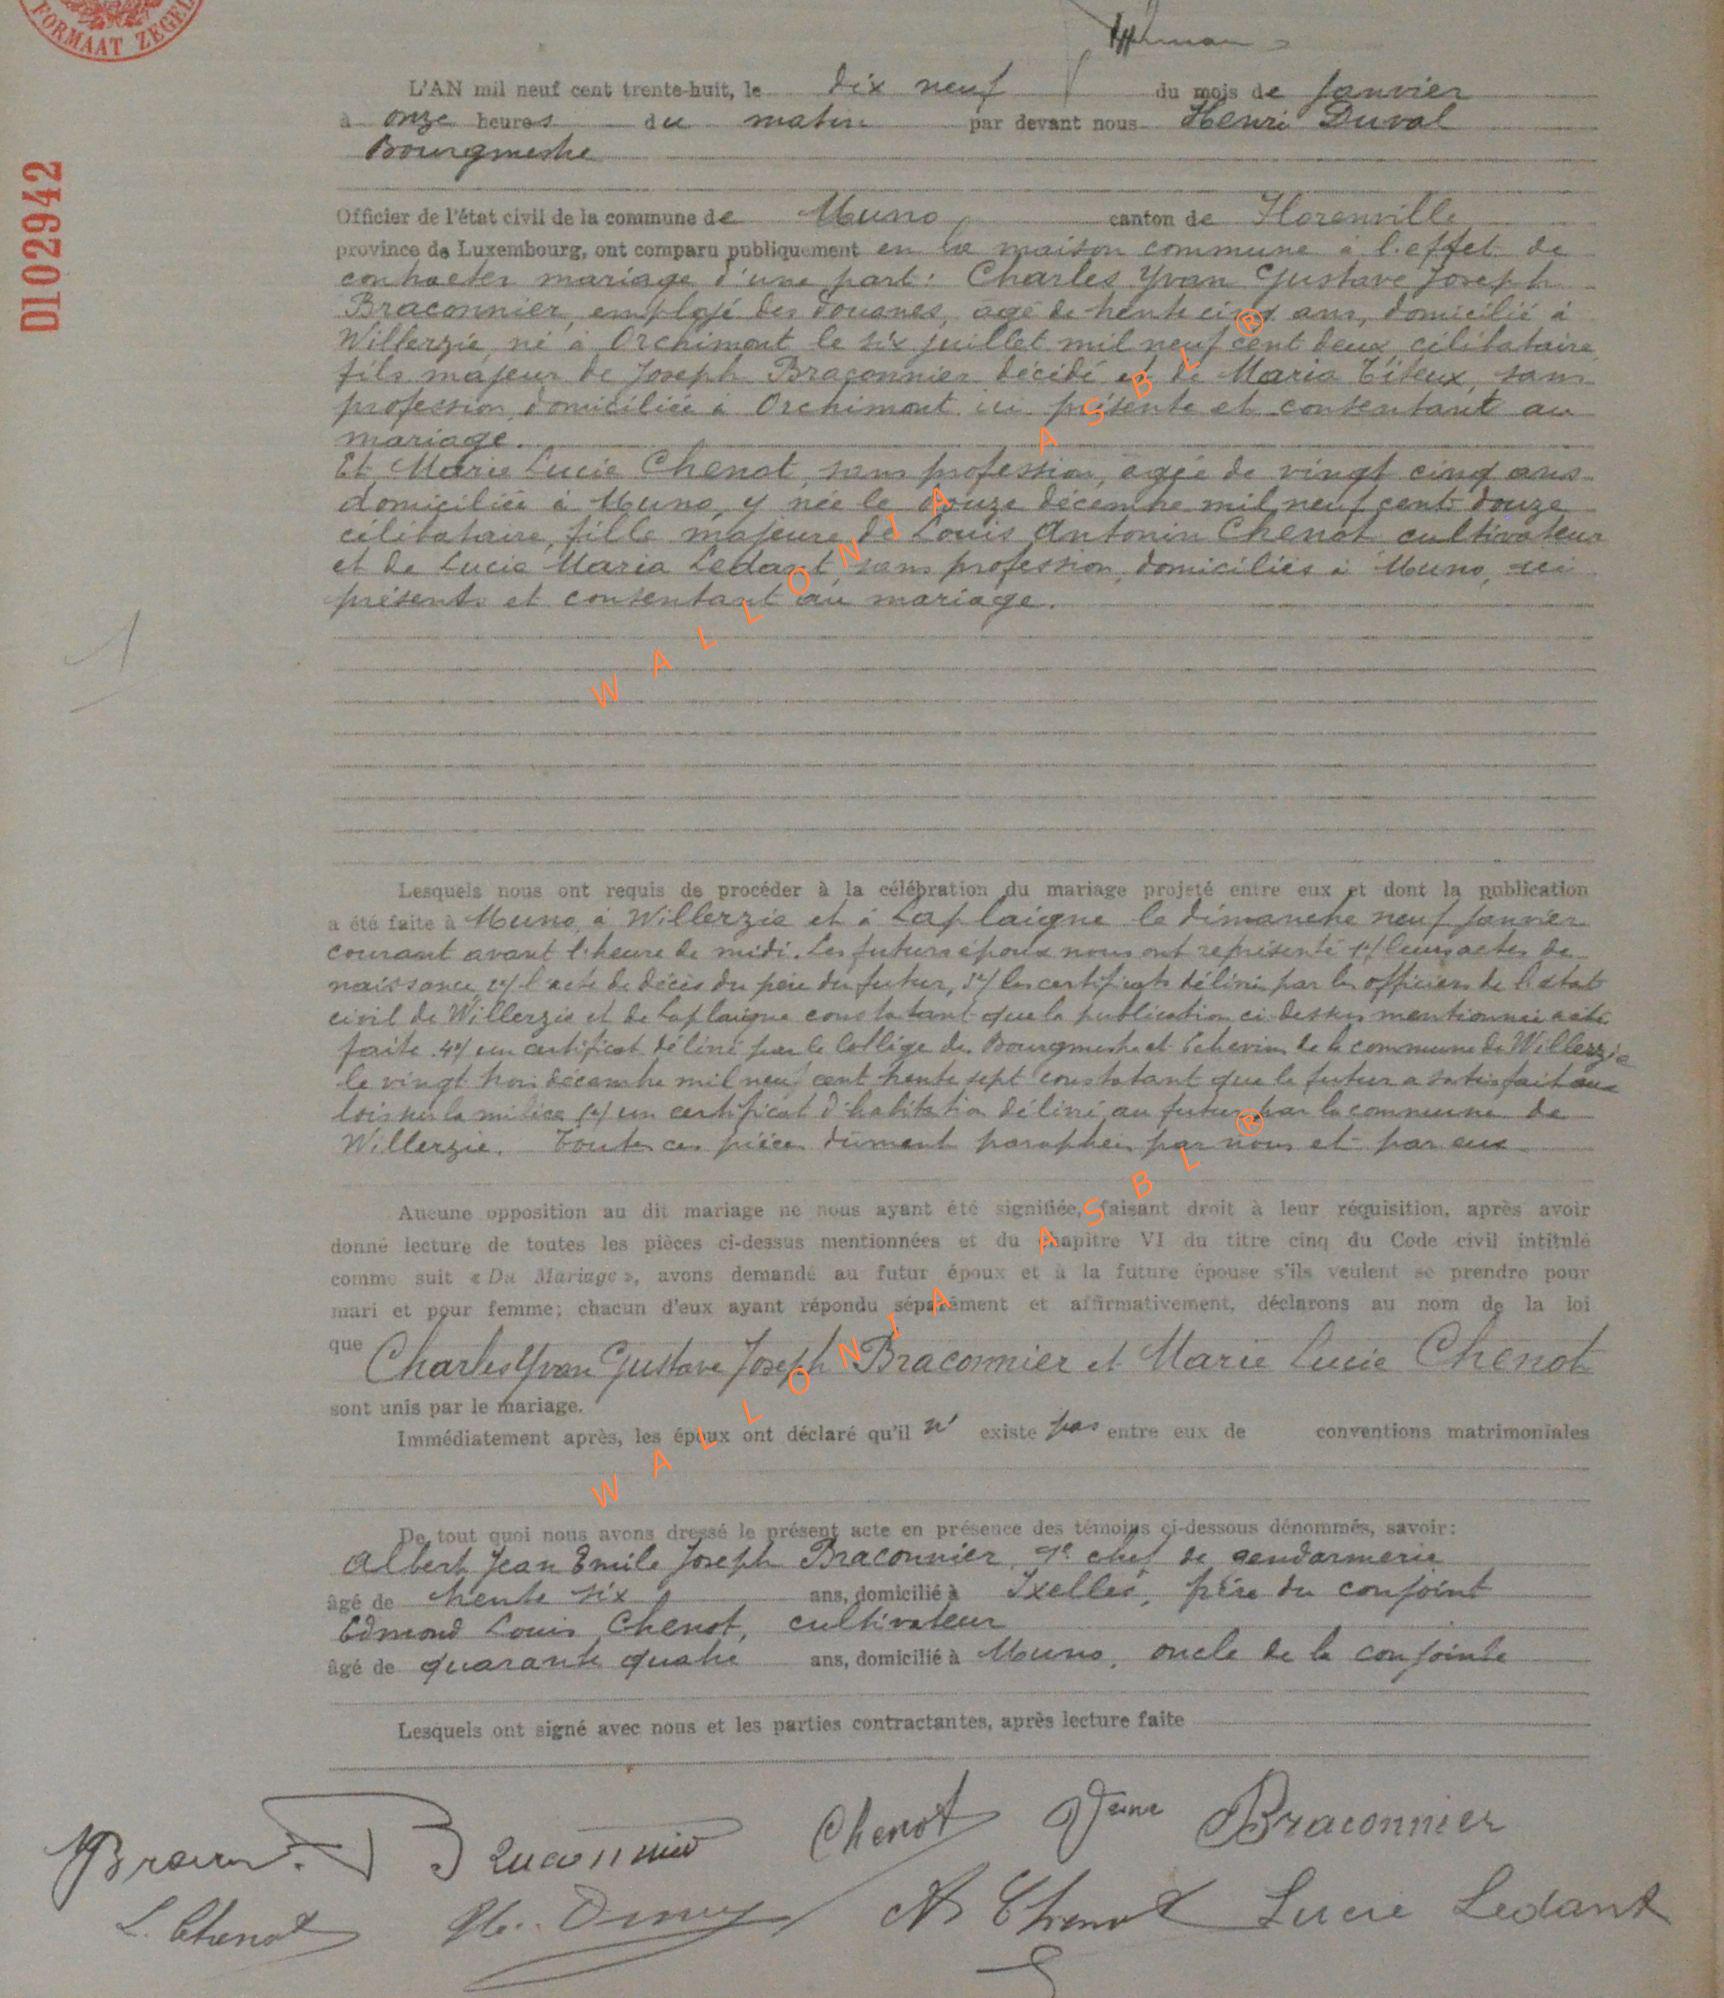 FORMAAT ZEGEL
D102942
L'AN mil neuf cent trente-huit, le dix neuf du mois de Janvier
à onze heures du matin par devant nous Henri Duval
Bourgmestre
Officier de l'état civil de la commune de Muno canton de Florenville
province de Luxembourg, ont comparu publiquement en la maison commune à l'effet de
contracter mariage d'une part: Charles Yvan Gustave Joseph
Braconnier, employé des douanes, âgé de trente cinq ans, domicilié à
Willerzie, né à Orchimont le six juillet mil neuf cent deux célibataire,
fils majeur de Joseph Braconnier décédé et de Maria Titeux, sans
profession, domiciliée à Orchimont ici présente et consentant au
mariage.
Et Marie Lucie Chenot, sans profession, âgée de vingt cinq ans
domiciliée à Muno, y née le douze décembre mil neuf cent douze,
célibataire, fille majeure de Louis Antonin Chenot cultivateur
et de Lucie Maria Ledant, sans profession, domiciliés à Muno, ici
présents et consentant au mariage.
1
Lesquels nous ont requis de procéder à la célébration du mariage projeté entre eux et dont la publication
a été faite à Muno, à Willerzie et à Laplaigne le dimanche neuf janvier
courant avant l'heure de midi. Les futurs époux nous ont représenté 1°/ leurs actes de
naissance, 2°/ l'acte de décès du père du futur, 3°/ les certificats délivrés par les officiers de l'état
civil de Willerzie et de Laplaigne constatant que la publication ci-dessus mentionnée a été
faite 4°/ un certificat délivré par le Collège des Bourgmestre et Echevins de la commune de Willerzie
le vingt trois décembre mil neuf cent trente sept constatant que le futur a satisfait aux
lois sur la milice 5°/ un certificat d'habitation délivré au futur par la commune de
Willerzie. Toutes ces pièces dûment paraphées par nous et par eux
Aucune opposition au dit mariage ne nous ayant été signifiée, faisant droit à leur réquisition, après avoir
donné lecture de toutes les pièces ci-dessus mentionnées et du chapitre VI du titre cinq du Code civil intitulé
comme suit « Du Mariage », avons demandé au futur époux et à la future épouse s'ils veulent se prendre pour
mari et pour femme; chacun d'eux ayant répondu séparément et affirmativement, déclarons au nom de la loi
que Charles Yvan Gustave Joseph Braconnier et Marie Lucie Chenot
sont unis par le mariage.
Immédiatement après, les époux ont déclaré qu'il n' existe pas entre eux de conventions matrimoniales
De tout quoi nous avons dressé le présent acte en présence des témoins ci-dessous dénommés, savoir:
Albert Jean Emile Joseph Braconnier, 1e chef de gendarmerie
âgé de trente six ans, domicilié à Ixelles, frère du conjoint
Edmond Louis Chenot, cultivateur
âgé de quarante quatre ans, domicilié à Muno, oncle de la conjointe
Lesquels ont signé avec nous et les parties contractantes, après lecture faite
Braconnier Chenot Veuve Braconnier
L. Chenot Chenot Lucie Ledant
WALLONIA ASBL ®
WALLONIA ASBL ®